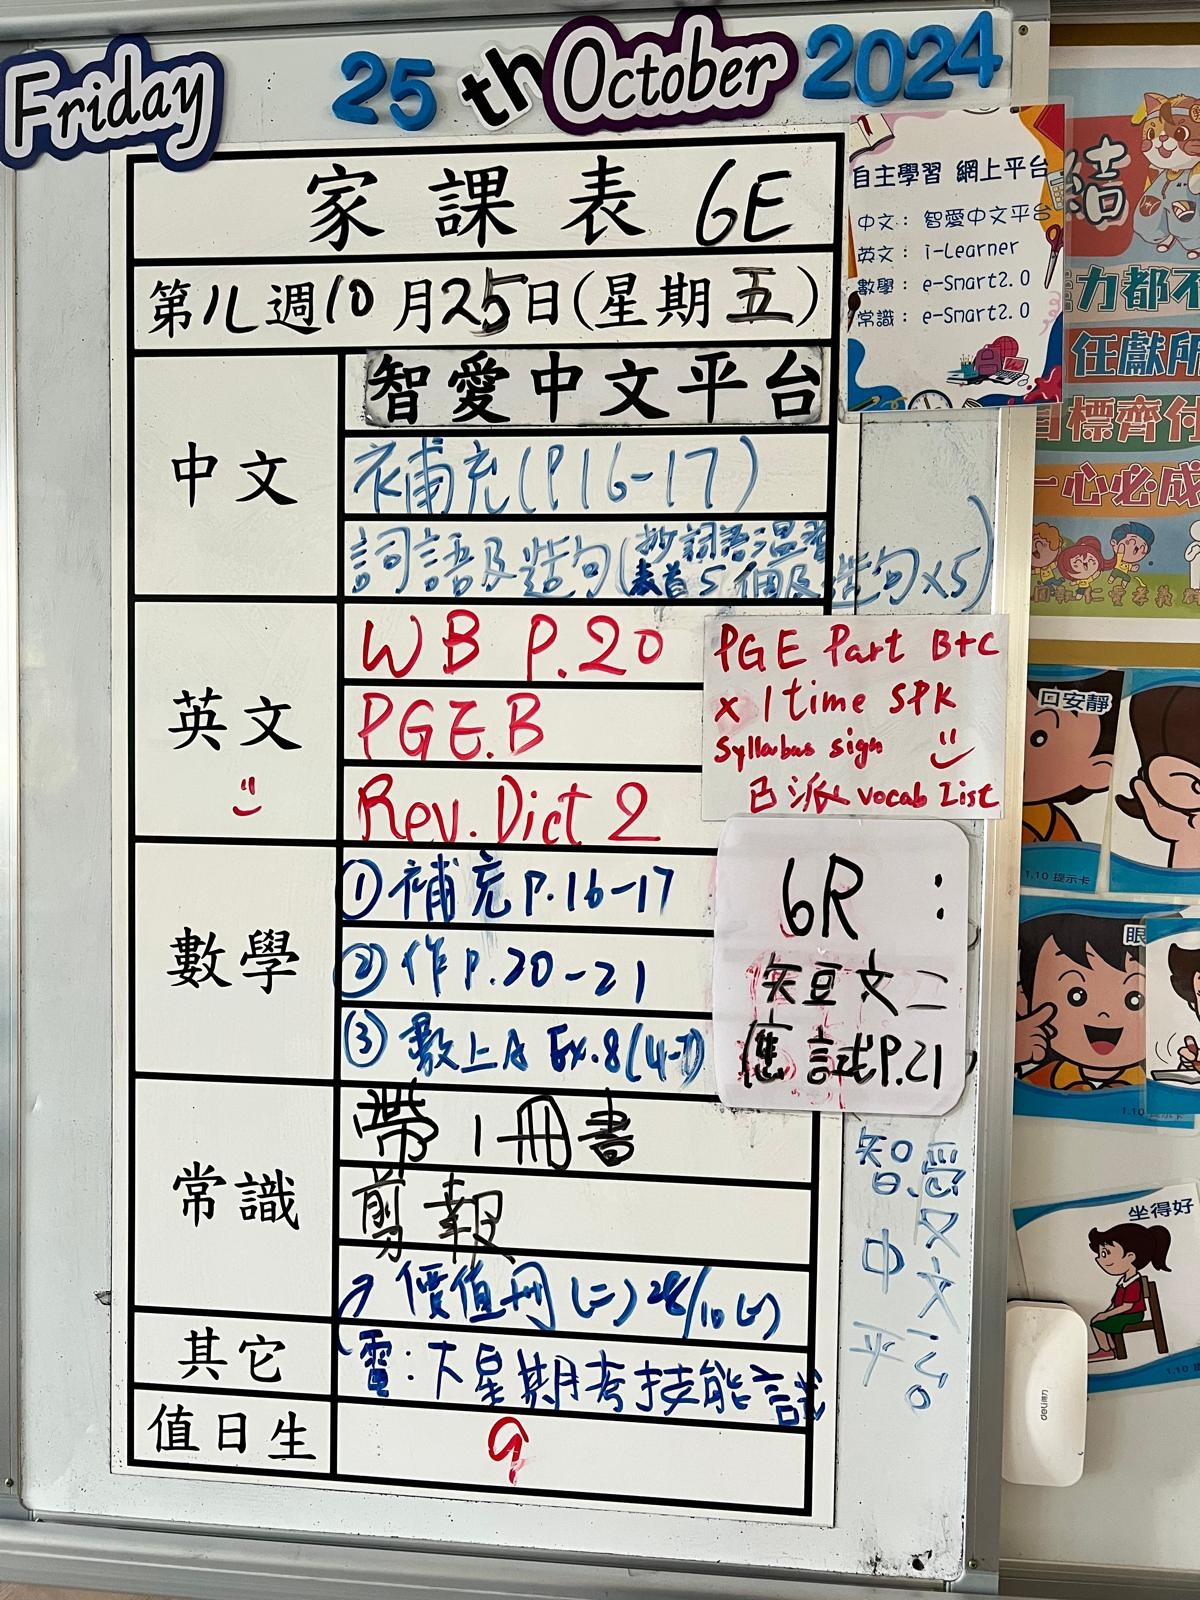 Friday 25th October 2024
家課表 6E
第八週10月25日(星期五)
中文
智愛中文平台
補充(P16-17)
詞語及造句(抄詞語溫習
表首5個及造句x5)
英文
WB P.20
PGE.B
Rev. Dict 2
PGE Part B+C
x 1 time SPK
Syllabus sign
已派 vocab List
數學
① 補充 P.16-17
② 作 P.20-21
③ 數上A Ex.8(4-7)
6R :
短文二
應試P.21
常識
帶1冊書
剪報
價值冊(二) 28/10(一)
其它
電:下星期考技能試
值日生
9
智愛
中文
平台
自主學習 網上平台
中文: 智愛中文平台
英文: i-Learner
數學: e-Smart2.0
常識: e-Smart2.0
結
力都不
任獻所
目標齊付
一心必成
口安靜
1.10 提示卡
眼
1.10 提示卡
坐得好
1.10
deli得力